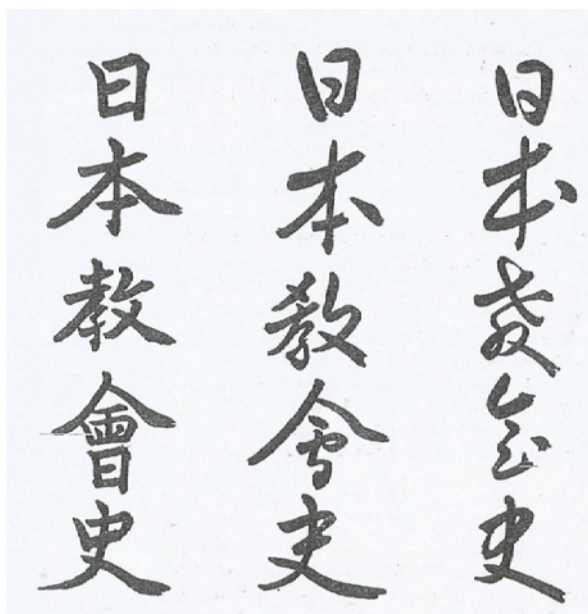 日本教會史
日本教會史
日本教會史